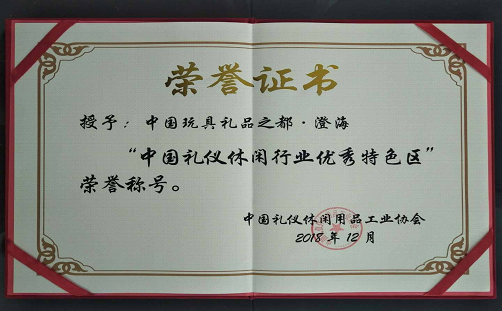 荣誉证书
授予：中国玩具礼品之都·澄海
“中国礼仪休闲行业优秀特色区”
荣誉称号。
中国礼仪休闲用品工业协会
2018年12月